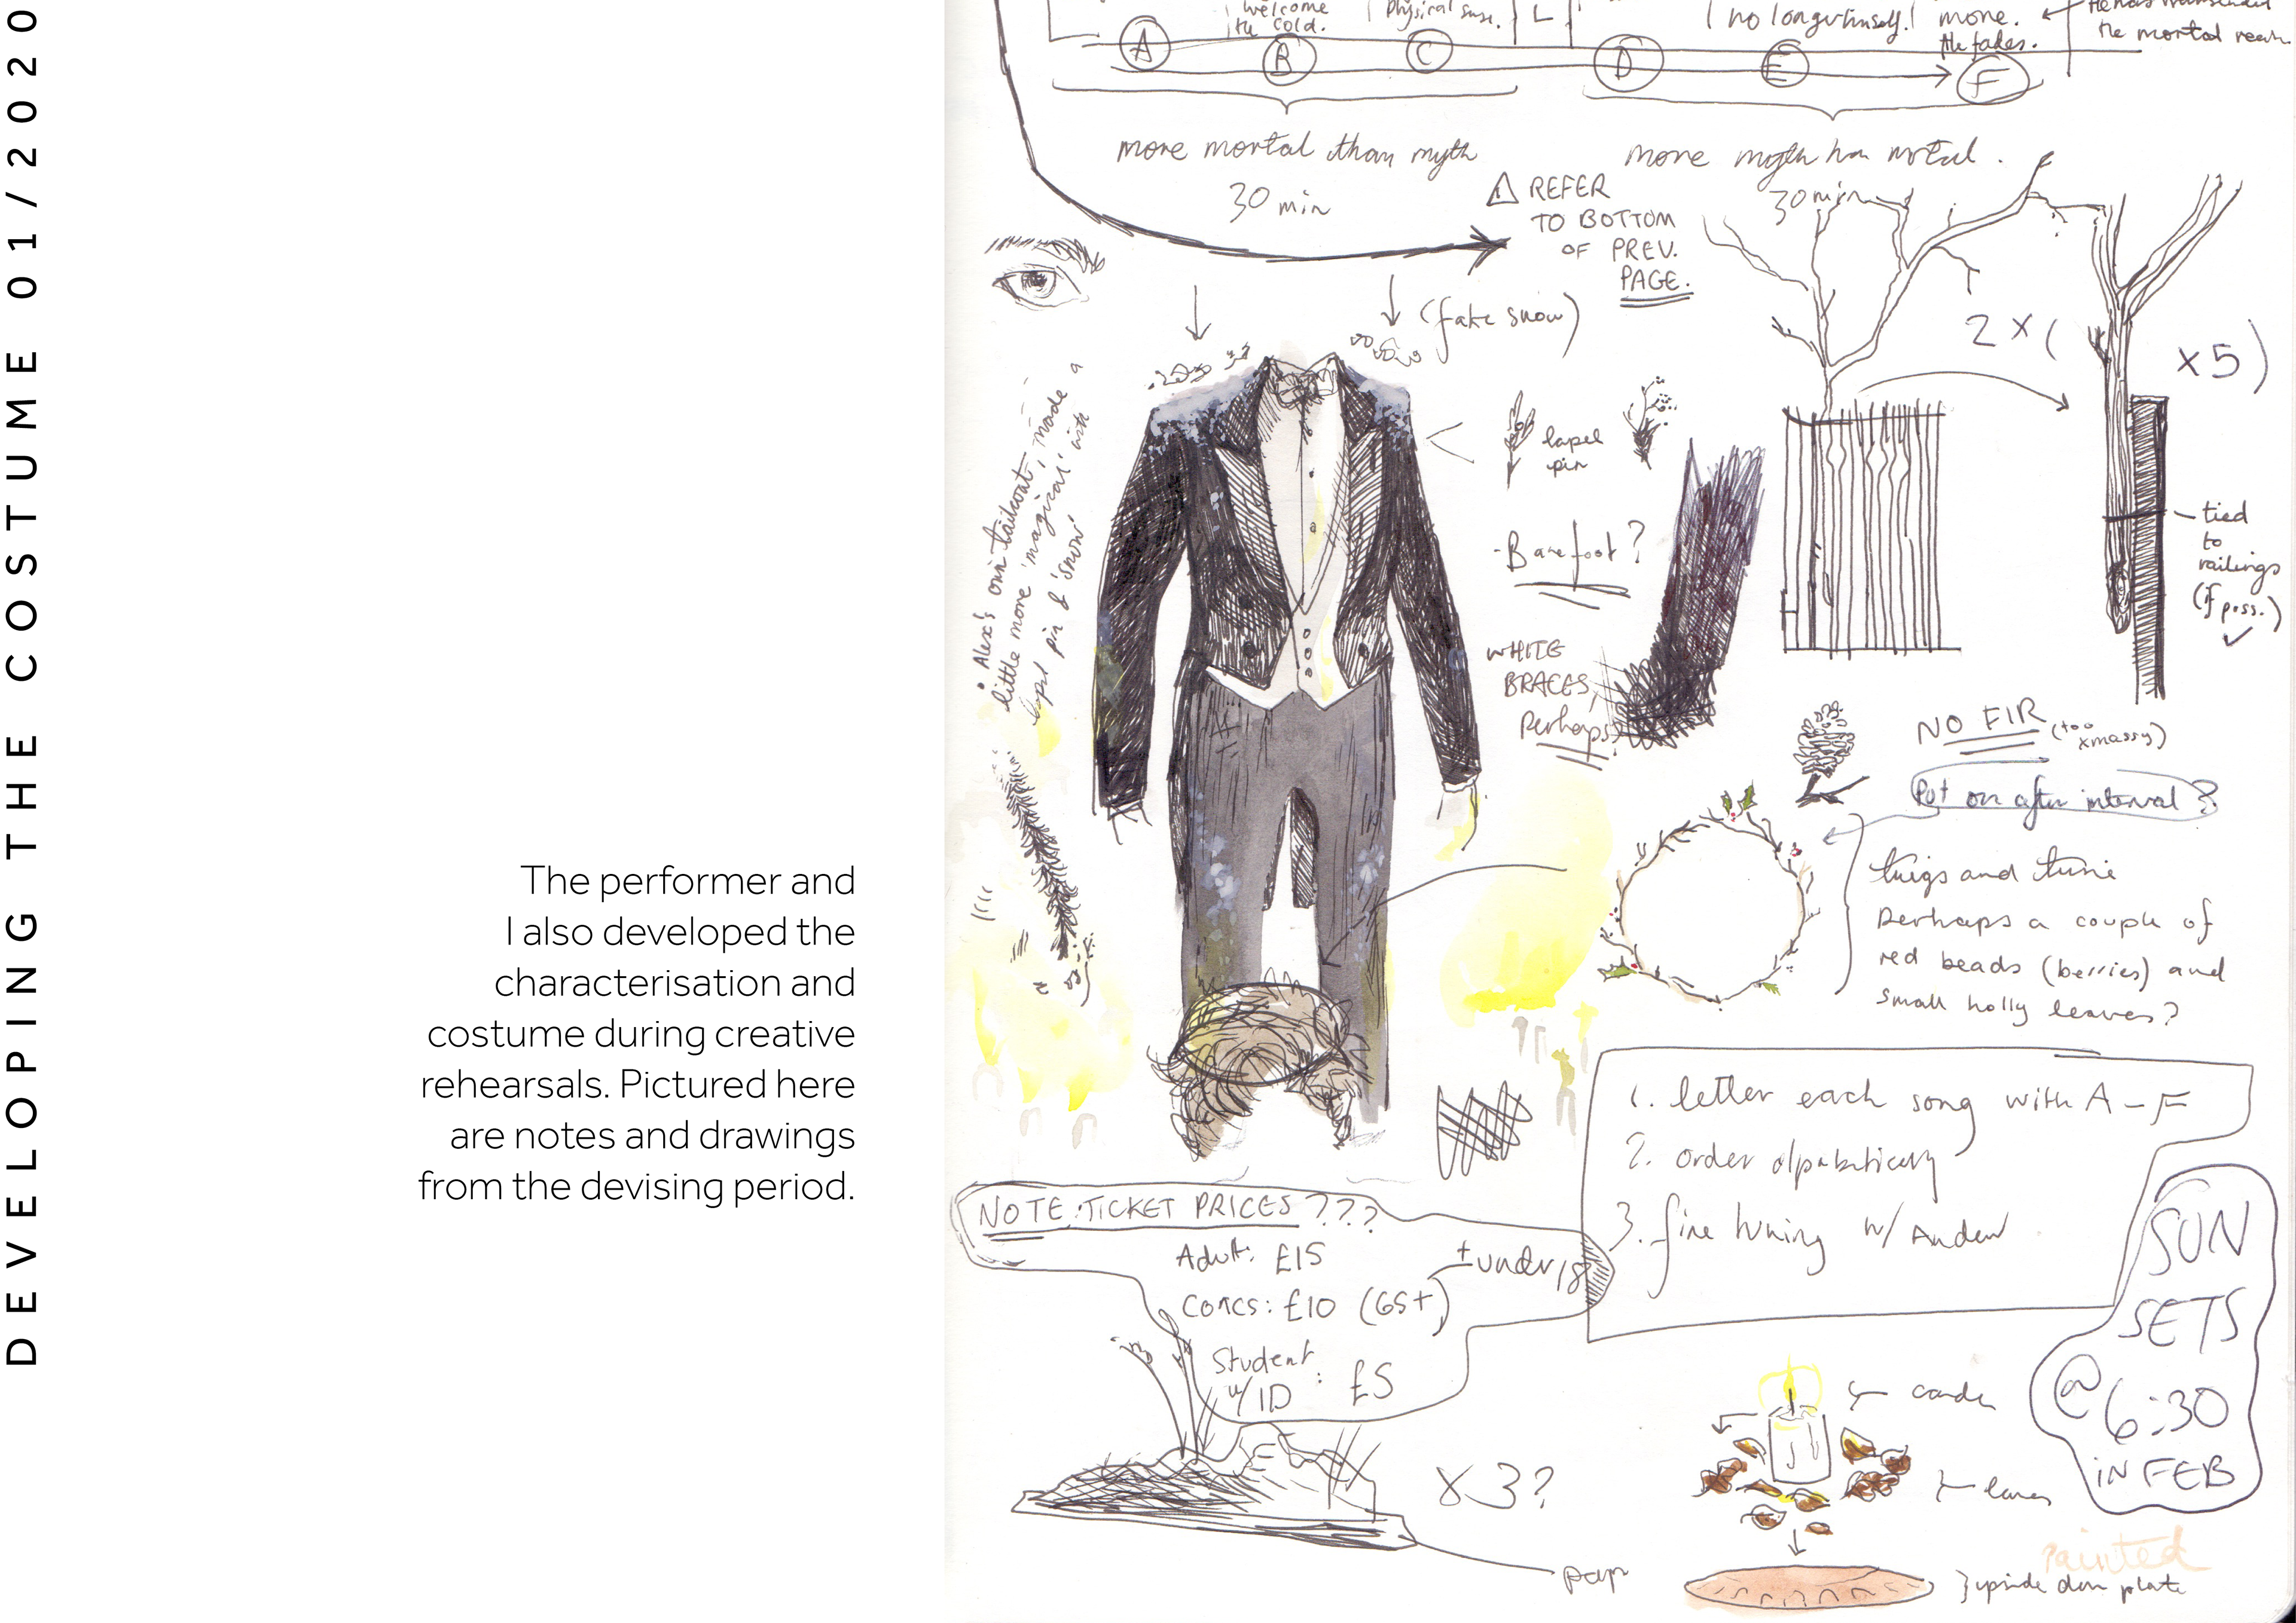 DEVELOPING THE COSTUME 01/2020
The performer and
I also developed the
characterisation and
costume during creative
rehearsals. Pictured here
are notes and drawings
from the devising period.
welcome
the cold.
physical
no longer himself.
more.
He fades.
the mortal
A
B
C
D
E
F
more mortal than myth
30 min
more myth han mortal.
30 min
REFER
TO BOTTOM
OF PREV.
PAGE.
(fake snow)
2 x (
x5)
• Alex's own tailcoat, made a
little more 'magical' with
lapel pin & 'snow'
lapel
pin
- Barefoot?
WHITE
BRACES,
Perhaps
tied
to
railings
(if poss.)
NO FIR (too
xmassy)
Put on after interval?
twigs and twine
perhaps a couple of
red beads (berries) and
small holly leaves?
1. letter each song with A - F
2. order alpabetically
3. fine tuning w/ Andrew
NOTE: TICKET PRICES???
Adult: £15
Concs: £10 (65+)
+ under 18
Student
w/ ID : £5
SUN
SETS
@ 6:30
iN FEB
x 3?
candle
leaves
Painted
upside down plate